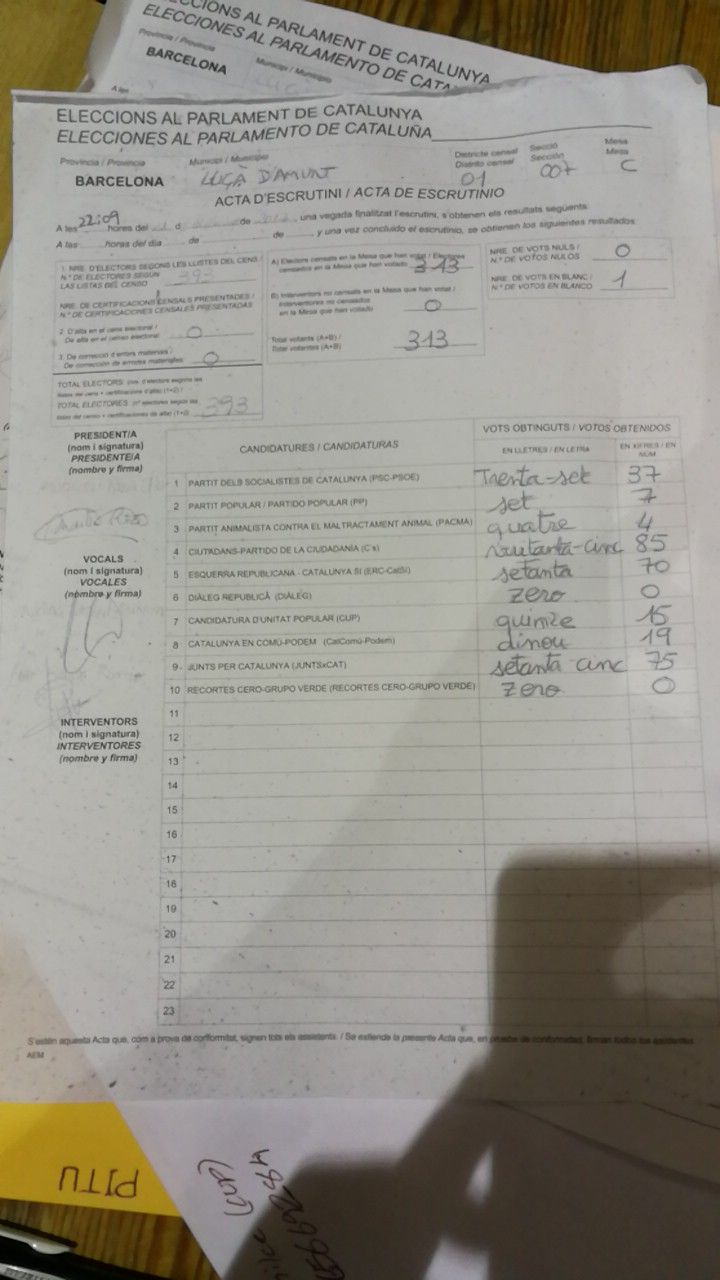 ELECCIONS AL PARLAMENT DE CATALUNYA
ELECCIONES AL PARLAMENTO DE CATA
Provincia / Provincia Municipi / Municipio
BARCELONA
A les
ELECCIONS AL PARLAMENT DE CATALUNYA
ELECCIONES AL PARLAMENTO DE CATALUÑA
Provincia / Provincia Municipi / Municipio Districte censal Secció Mesa
Distrito censal Sección Mesa
BARCELONA LLIÇÀ D'AMUNT 01 007 C
ACTA D'ESCRUTINI / ACTA DE ESCRUTINIO
A les 22:09 hores del d de de, una vegada finalitzat l'escrutini, s'obtenen els resultats següents:
A las hores del día de de y una vez concluido el escrutinio, se obtienen los siguientes resultados:
1. NRE. D'ELECTORS SEGONS LES LLISTES DEL CENS /
N.º DE ELECTORES SEGÚN
LAS LISTAS DEL CENSO 393
NRE. DE CERTIFICACIONS CENSALS PRESENTADES /
N.º DE CERTIFICACIONES CENSALES PRESENTADAS
2. D'alta en el cens electoral /
De alta en el censo electoral 0
3. De correcció d'errors materials /
De corrección de errores materiales 0
TOTAL ELECTORS: (nre. d'electors segons les
llistes del cens + certificacions d'alta) (1+2) /
TOTAL ELECTORES: (nº electores según las
listas del censo + certificaciones de alta) (1+2) 393
A) Electors censats en la Mesa que han votat / Electores
censados en la Mesa que han votado 313
B) Interventors no censats en la Mesa que han votat /
Interventores no censados
en la Mesa que han votado 0
Total votants (A+B) /
Total votantes (A+B) 313
NRE. DE VOTS NULS /
N.º DE VOTOS NULOS 0
NRE. DE VOTS EN BLANC /
N.º DE VOTOS EN BLANCO 1
PRESIDENT/A
(nom i signatura)
PRESIDENTE/A
(nombre y firma)
VOCALS
(nom i signatura)
VOCALES
(nombre y firma)
INTERVENTORS
(nom i signatura)
INTERVENTORES
(nombre y firma)
CANDIDATURES / CANDIDATURAS
VOTS OBTINGUTS / VOTOS OBTENIDOS
EN LLETRES / EN LETRA EN XIFRES / EN NÚM
1 PARTIT DELS SOCIALISTES DE CATALUNYA (PSC-PSOE) Trenta-set 37
2 PARTIT POPULAR / PARTIDO POPULAR (PP) set 7
3 PARTIT ANIMALISTA CONTRA EL MALTRACTAMENT ANIMAL (PACMA) quatre 4
4 CIUTADANS-PARTIDO DE LA CIUDADANÍA (C's) vuitanta-cinc 85
5 ESQUERRA REPUBLICANA - CATALUNYA SÍ (ERC-CatSí) setanta 70
6 DIÀLEG REPUBLICÀ (DIÀLEG) zero 0
7 CANDIDATURA D'UNITAT POPULAR (CUP) quinze 15
8 CATALUNYA EN COMÚ-PODEM (CatComú-Podem) dinou 19
9 JUNTS PER CATALUNYA (JUNTSxCAT) setanta cinc 75
10 RECORTES CERO-GRUPO VERDE (RECORTES CERO-GRUPO VERDE) zero 0
11
12
13
14
15
16
17
18
19
20
21
22
23
S'estén aquesta Acta que, com a prova de conformitat, signen tots els assistents. / Se extiende la presente Acta que, en prueba de conformidad, firman todos los asistentes.
AEM
PITU
(CUP)